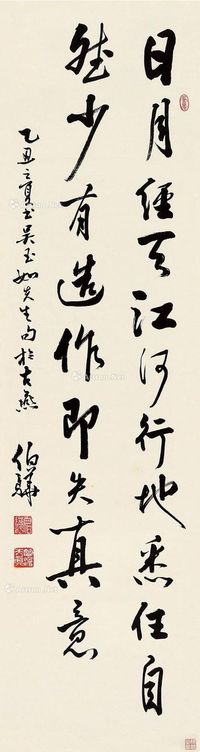 日月經天江河行地悉任自
然少有造作即失真意
乙丑之夏書吳玉如先生句於古燕
伯驊